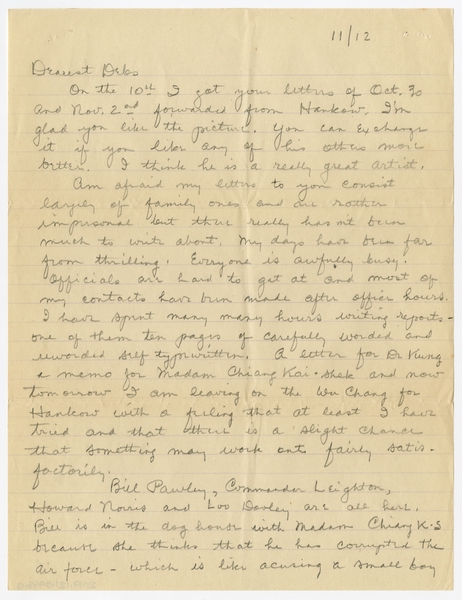 11/12
Dearest Debs
On the 10th I got your letters of Oct. 30
and Nov. 2nd forwarded from Hankow. I'm
glad you like the picture. You can exchange
it if you like any of his others more
better. I think he is a really great artist.
Am afraid my letters to you consist
largely of family ones and are rather
impersonal but there really hasn't been
much to write about. My days have been far
from thrilling. Everyone is awfully busy.
Officials are hard to get at and most of
my contacts have been made after office hours.
I have spent many many hours writing reports -
one of them ten pages of carefully worded and
reworded self typewritten. A letter for Dr Kung
a memo for Madam Chiang Kai-shek and now
tomorrow I am leaving on the Wu Chang for
Hankow with a feeling that at least I have
tried and that there is a slight chance
that something may work out fairly satis-
factorily.
Bill Pawley, Commander Leighton,
Howard Norris and are all here.
Bill is in the dog honor with Madam Chiang K-S
because she thinks that he has corrupted the
air force - which is like acusing a small boy